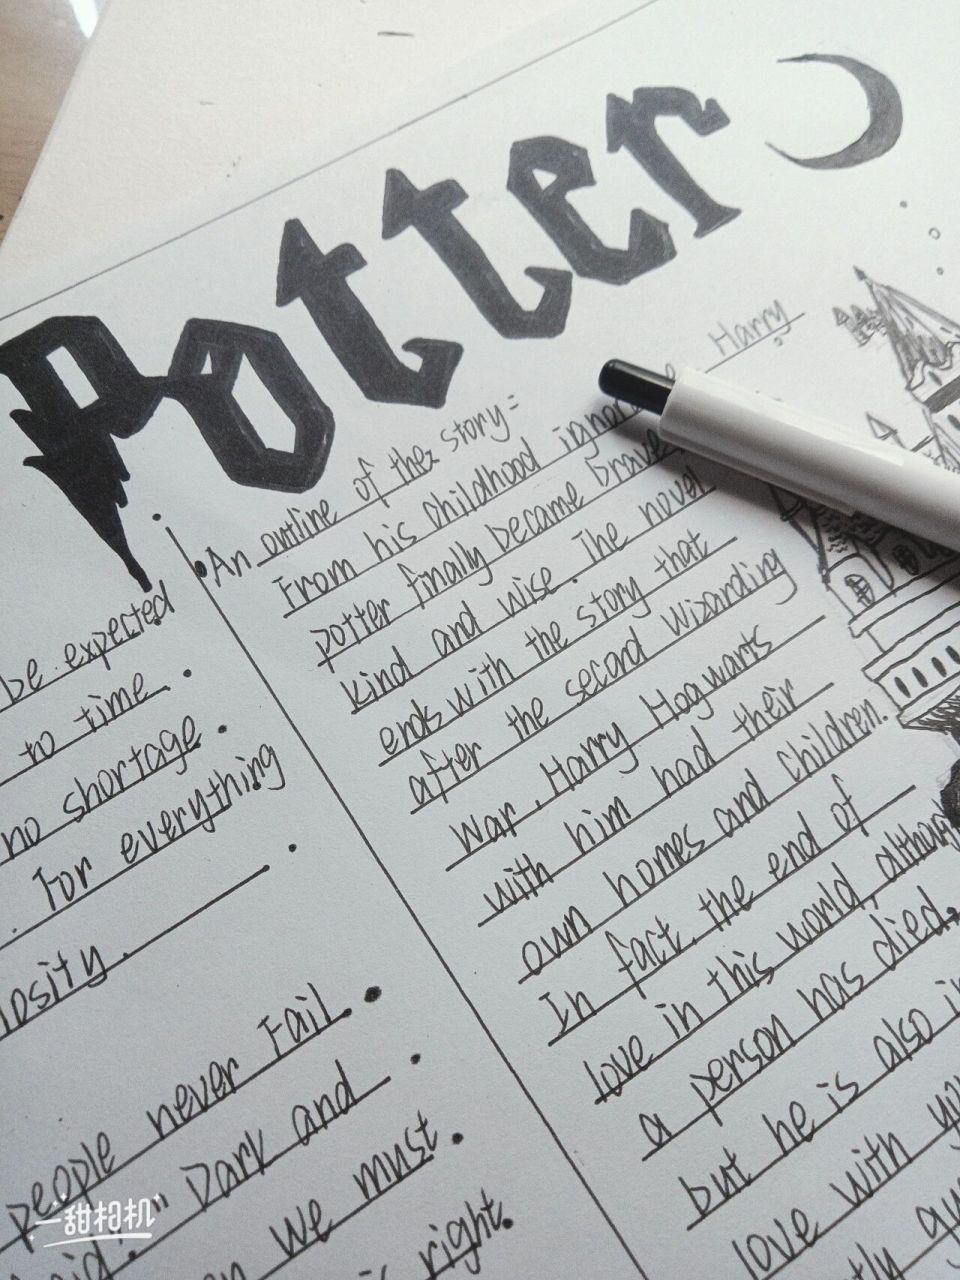 Potter
be expected
to time.
no shortage.
For everything
losity.
people never Fail.
Dark and
we must.
right.
An outline of the story:
Harry
From his childhood
potter finally became brave,
kind and wise. The novel
ends with the story that
after the second wizarding
war, Harry Hogwarts
with him had their
own homes and children.
In fact, the end of
love in this world, although
a person has died.
but he is also in
love with
一甜相机